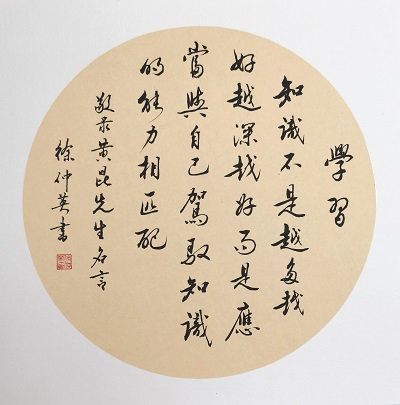 學習
知識不是越多越
好越深越好而是應
當與自己駕馭知識
的能力相匹配
敬录黄昆先生名言
徐仲英書